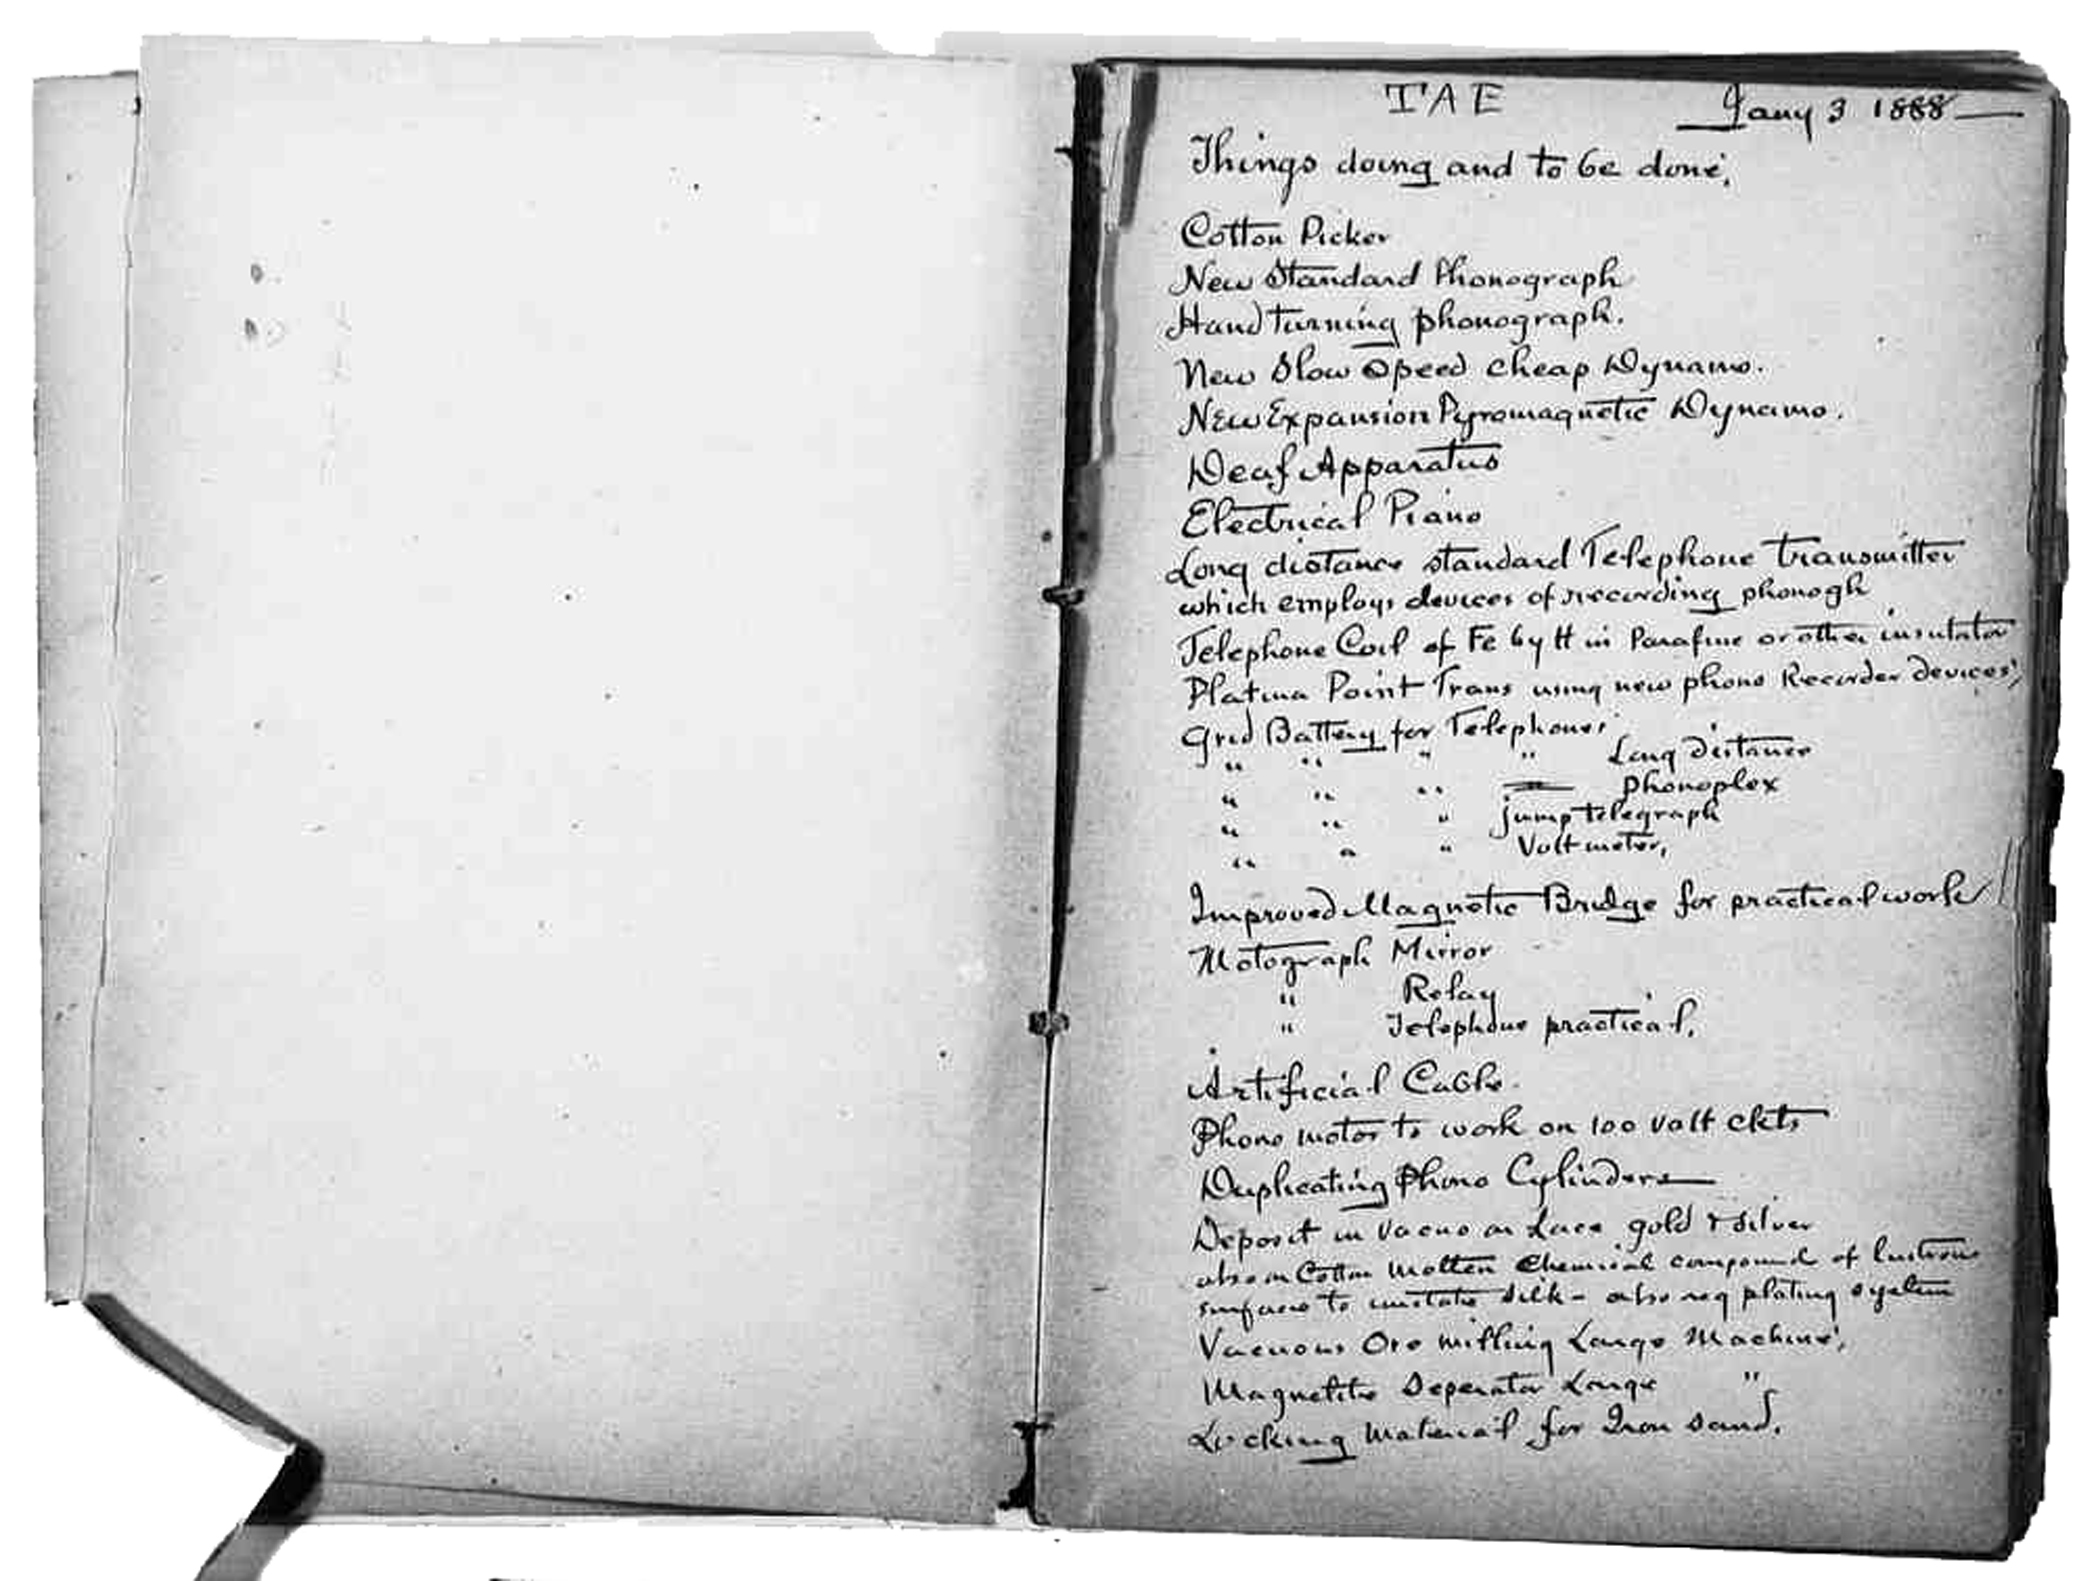 TAE Jany 3 1888
Things doing and to be done.
Cotton Picker
New Standard Phonograph
Hand turning phonograph.
New Slow Speed cheap Dynamo.
New Expansion Pyromagnetic Dynamo.
Deaf Apparatus
Electrical Piano
Long distance standard Telephone transmitter
which employs devices of recording phonogh
Telephone Coil of Fe by H in Parafine or other insulator
Platina Point Trans using new phono Recorder devices,
Grid Battery for Telephones
" " " " Long distance
" " " Phonoplex
" " " jump telegraph
" " " Voltmeter,
Improved Magnetic Bridge for practical work
Motograph Mirror
" Relay
" Telephone practical,
Artificial Cable
Phono motor to work on 100 volt ckts
Duplicating Phono Cylinders
Deposit in vacuo on lace gold & silver
also on Cotton molten chemical compound of lustrous
surface to imitate silk - also reg plating system
Vacuous Ore milling Large Machine,
Magnetite Seperator Large "
Locking material for Iron sand.